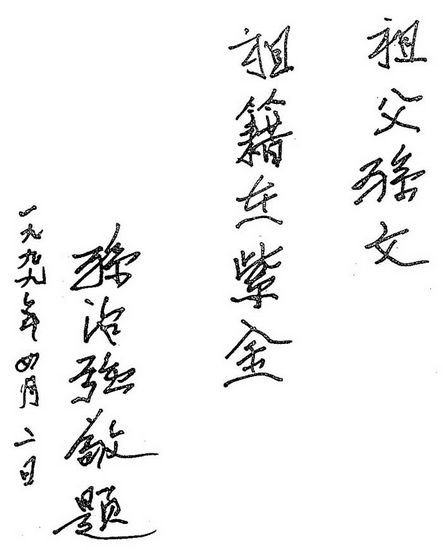 祖父孫文
祖籍在紫金
孫治強敬題
一九九九年四月二日